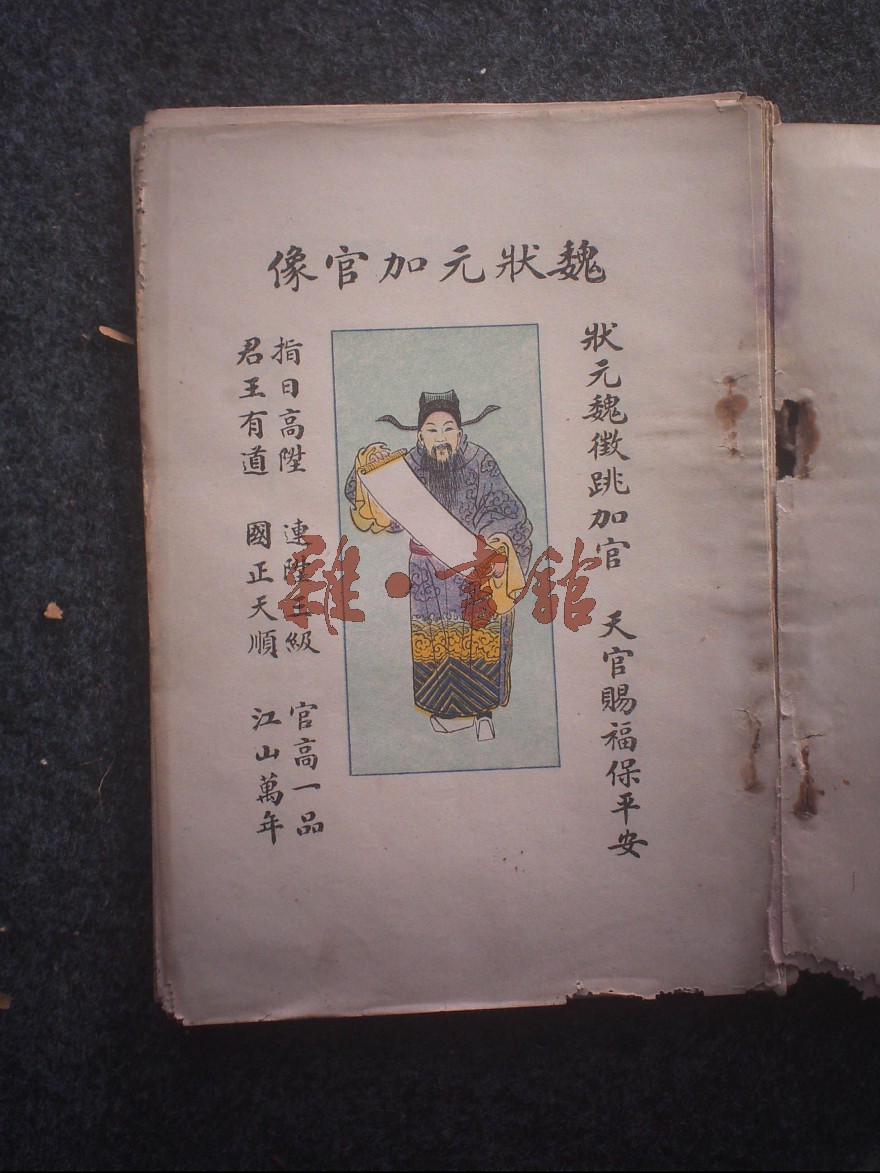 魏狀元加官像
狀元魏徵跳加官 天官賜福保平安
指日高陞 連陞三級 官高一品
君王有道 國正天順 江山萬年
雜·書館